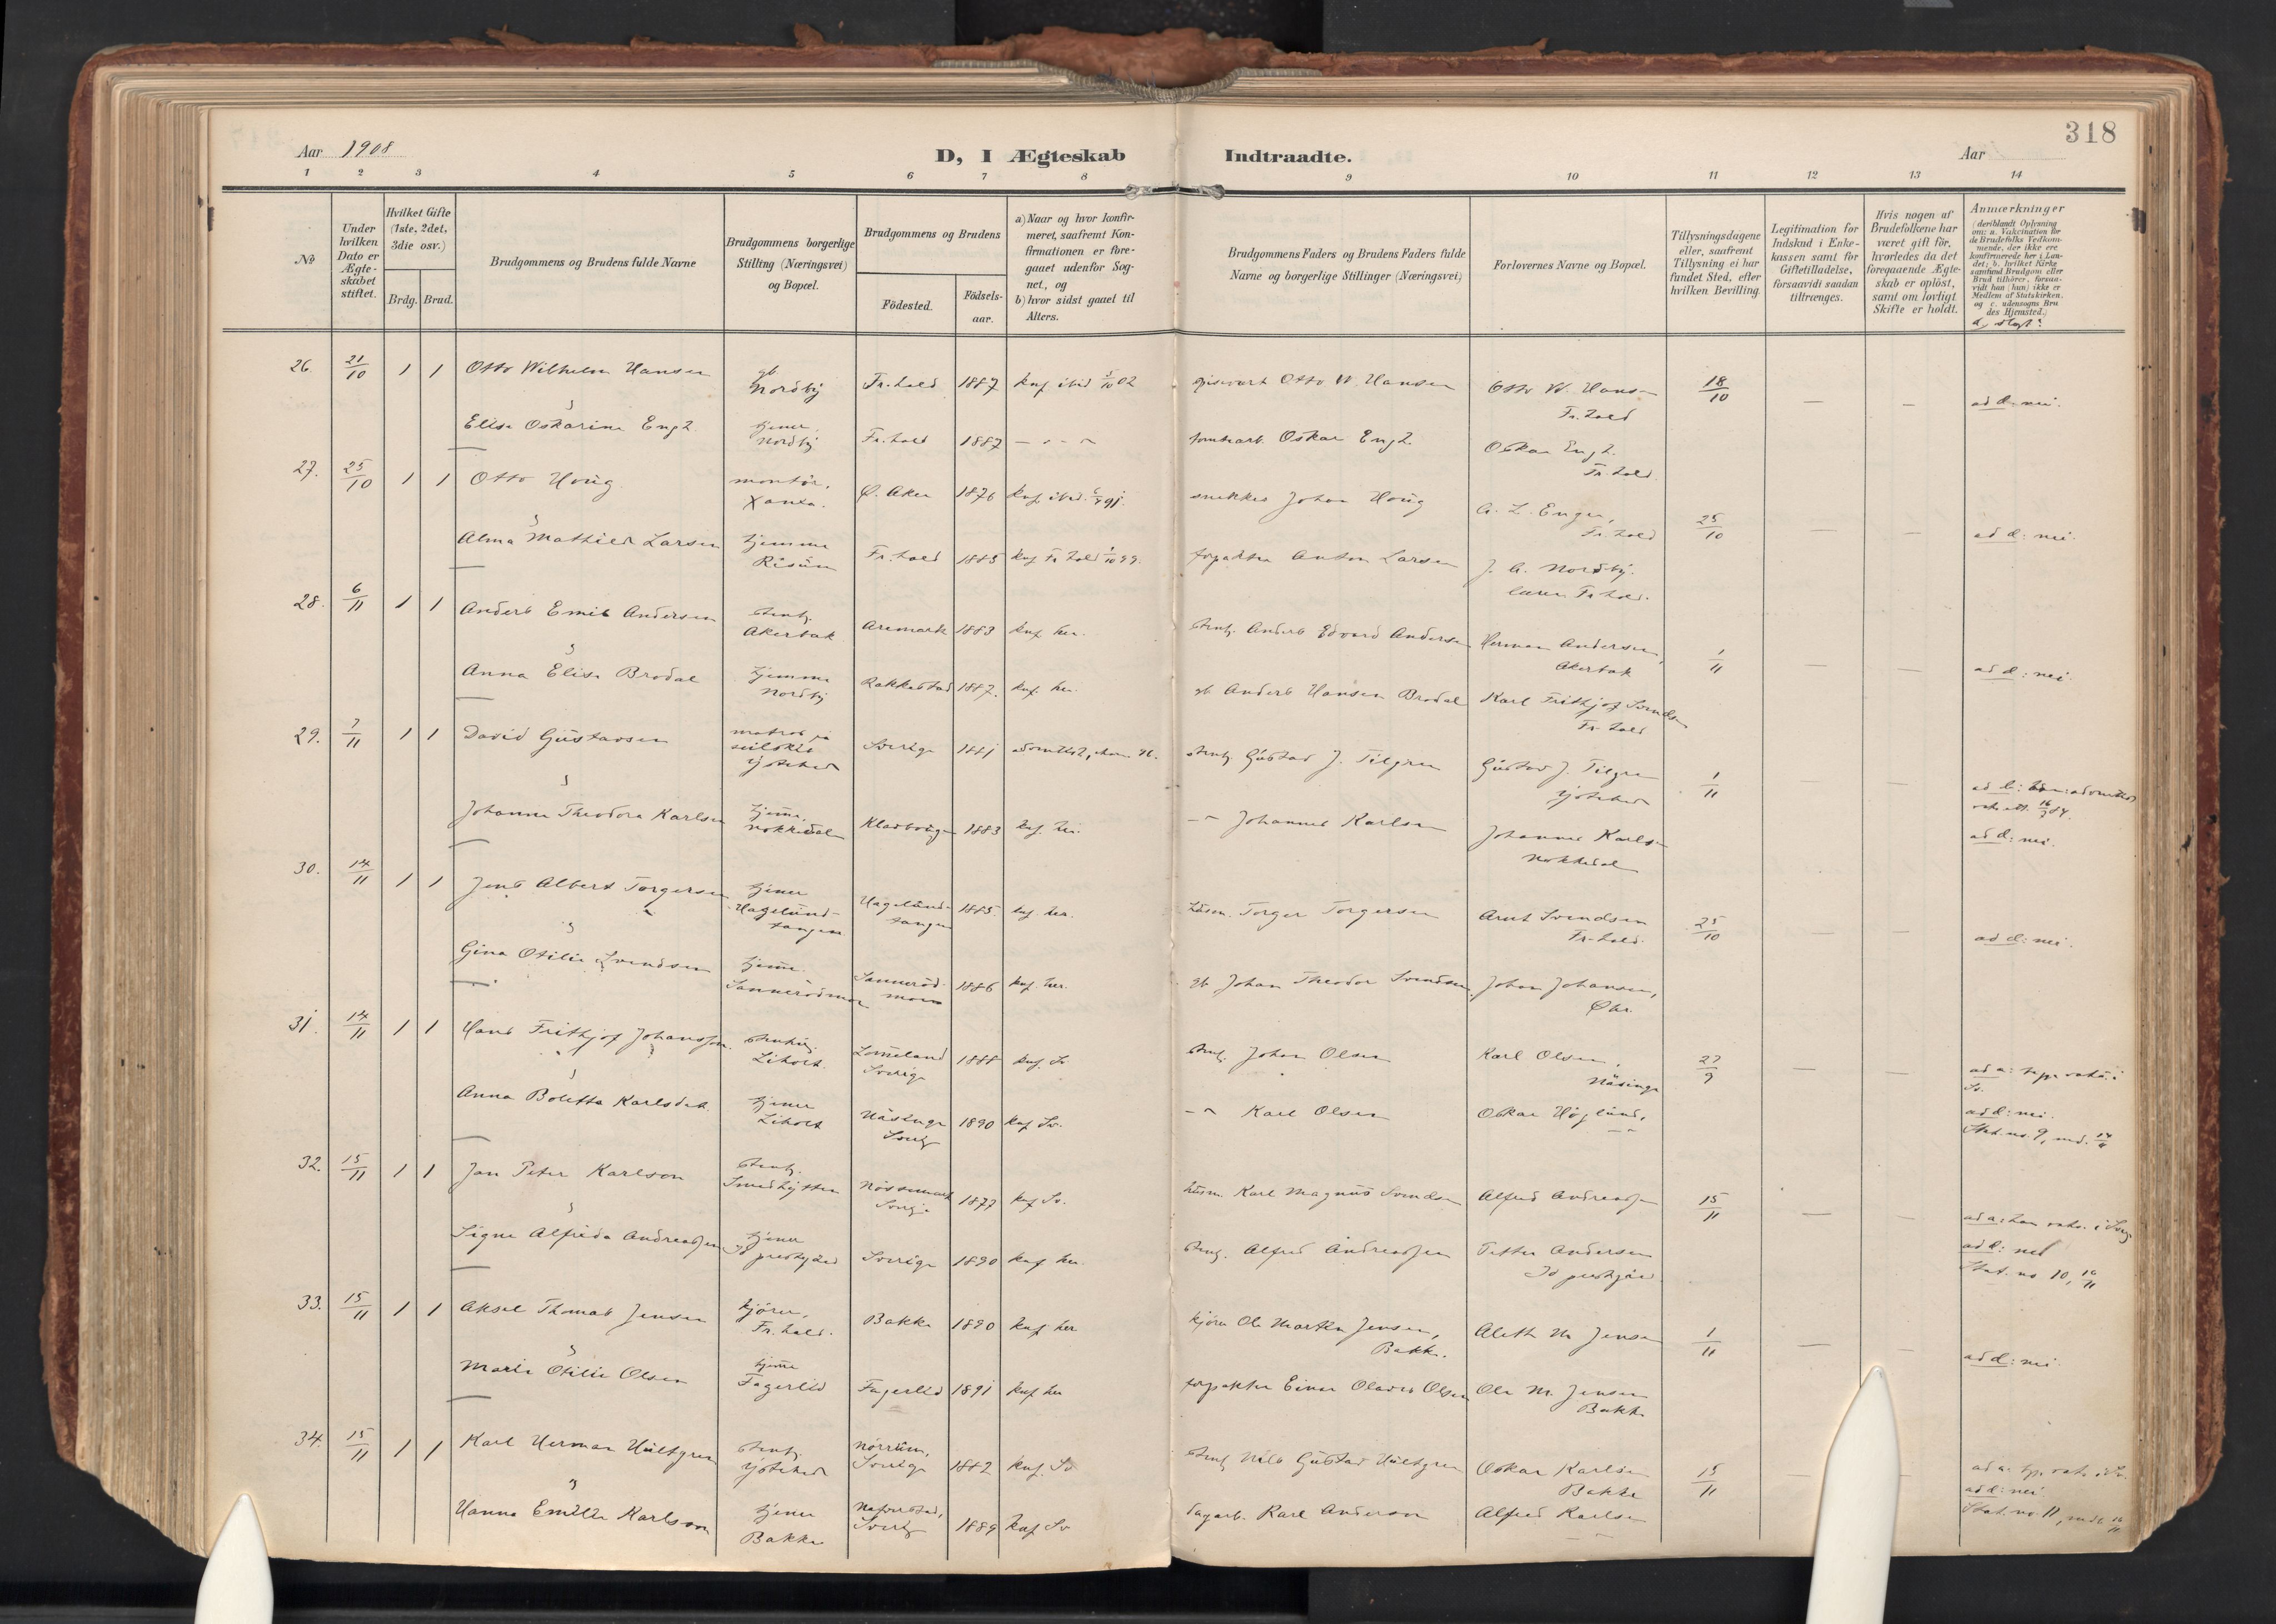 318
Aar 1908
D, I Ægteskab Indtraadte.
Aar
1 2 3 4 5 6 7 8 9 10 11 12 13 14
No
Under hvilken Dato er Ægteskabet stiftet.
Hvilket Gifte (1ste, 2det, 3die osv.)
Brdg. Brud.
Brudgommens og Brudens fulde Navne
Brudgommens borgerlige Stilling (Næringsvei) og Bopæl.
Brudgommens og Brudens
Födested.
Födsels-aar.
a) Naar og hvor konfirmeret, saafremt Konfirmationen er foregaaet udenfor Sognet, og
b) hvor sidst gaaet til Alters.
Brudgommens Faders og Brudens Faders fulde Navne og borgerlige Stillinger (Næringsvei)
Forlovernes Navne og Bopæl.
Tillysningsdagene eller, saafremt Tillysning ei har fundet Sted, efter hvilken Bevilling.
Legitimation for Indskud i Enkekassen samt for Giftetilladelse, forsaavidt saadan tiltrænges.
Hvis nogen af Brudefolkene har været gift för, hvorledes da det foregaaende Ægteskab er oplöst, samt om lovligt Skifte er holdt.
Anmærkninger
(deriblandt Oplysning om: a. Vakcination for de Brudefolks Vedkommende, der ikke ere konfirmerede her i Landet; b. hvilket Kirkesamfund Brudgom eller Brud tilhörer, forsaavidt han (hun) ikke er Medlem af Statskirken, og c. udensogns Brudes Hjemsted.)
d, slegt?
26. 21/10 1 1 Otto Wilhelm Hansen gb Nordby Fr.hald 1887 knf ibid 5/10 02 Otto W. Hansen Otto W. Hansen Fr.hald 18/10 — — ad d: nei.
Elise Oskarine Engh. tjener, Nordby Fr.hald 1887 tomtearb. Oskar Engh. Oskar Engh. Fr.hald.
27. 25/10 1 1 Otto Houg montör, Xania. Ø. Aker 1876 knf. ibid. 91. snekker Johan Houg A. L. Enger, Fr.hald 25/10 — — ad d: nei.
Alma Mathilde Larsen hjemme Risum Fr.hald 1885 knf Fr.hald 1/10 99. forpakter Anton Larsen J. A. Nordby. lærer Fr.hald.
28. 6/11 1 1 Anders Emil Andersen stenh. Akerbak Aremark 1883 knf her. stenh. Anders Edvard Andersen Herman Andersen, Akerbak 1/11 — — ad d: nei.
Anna Elise Brodal hjemme Nordby Rakkestad 1887. knf. her. gb Anders Hansen Brodal Karl Frithjof Svendsen Fr.hald
29. 7/11 1 1 David Gustavsen matros på seilskib Sverige 1881 stenh. Gustav J. Tilgren Gustav J. Tilgren 1/11 — —
Johanne Theodora Karlsen hjeme, Nokkedal 1883 knf. her. Johannes Karlsen Johannes Karlsen Nokkedal ad d: nei.
30. 14/11 1 1 Jens Albert Torgersen tjener Hagelund-tangen Hagelund-tangen 1885. knf. her. husm. Torger Torgersen Arnt Svendsen Fr.hald. 25/10 — — ad d: nei.
Gina Otilie Svendsen hjeme. Sannerödmoen Sanneröd-moen 1886 knf. her. gb Johan Theodor Svendsen Johan Johansen,
31. 14/11 1 1 Hans Frithjof Johansson. stenhug. Liholt Lommeland Sverige 1888 knf. Sv stenh. Johan Olsen Karl Olsen, Näsinge 27/9 — —
Anna Boletta Karlsdat. tjener Liholt Näsinge Sverig 1890 knf Sv. Karl Olsen Oskar Höglund, ad d: nei. Stat. no. 9, md. 14/11
32. 15/11 1 1 Jan Peter Karlson stenh. Smedhytten Nössemark Sverige 1877 knf Sv. husm. Karl Magnus Svendsen Alfred Andreassen 15/11 — — ad a: han vakc. i Sverig
Signe Alfrida Andreassen tjener Id prestgård Sverige 1890 knf her. stenh. Alfred Andreassen Petter Andersen Id prestgård ad d: nei Stat. no 10, 16/11
33. 15/11 1 1 Aksel Thomas Jensen kjörer, Fr.hald. Bakke 1890 knf her kjörer Ole Martin Jensen, Bakke. Aleth M Jensen 1/11 — — ad d: nei.
Marie Otilie Olsen hjeme Fagerlid Fagerlid 1891 knf her forpakter Einar Olaves Olsen Ole M. Jensen Bakke
34. 15/11 1 1 Karl Herman Hultgren stenh. Norrum, Sverige 1882 knf. Sv stenh Nils Gustav Hultgren Oskar Karlsen Bakke 15/11 —
Hanna Emilie Karlson tjener Bakke Naverstad, Sverig 1889 knf Sv dagarb. Karl Anderson Alfred Karlsen ad d: nei Stat. no. 11, 16/11